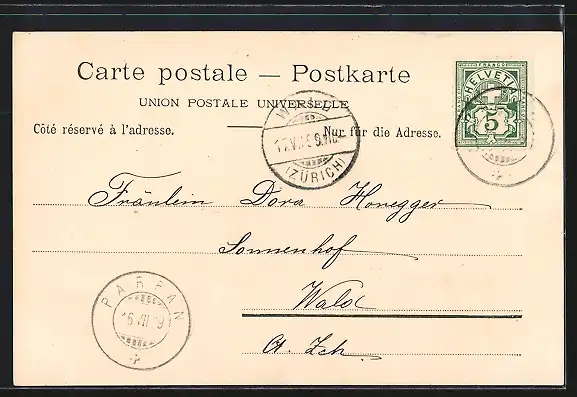 Carte postale — Postkarte
UNION POSTALE UNIVERSELLE
Côté réservé à l'adresse.
Nur für die Adresse.
FRANCO
HELVETIA
5
(ZÜRICH)
Fräulein Dora Honegger
Sonnenhof
Wald
Ct. Zch.
PARPAN